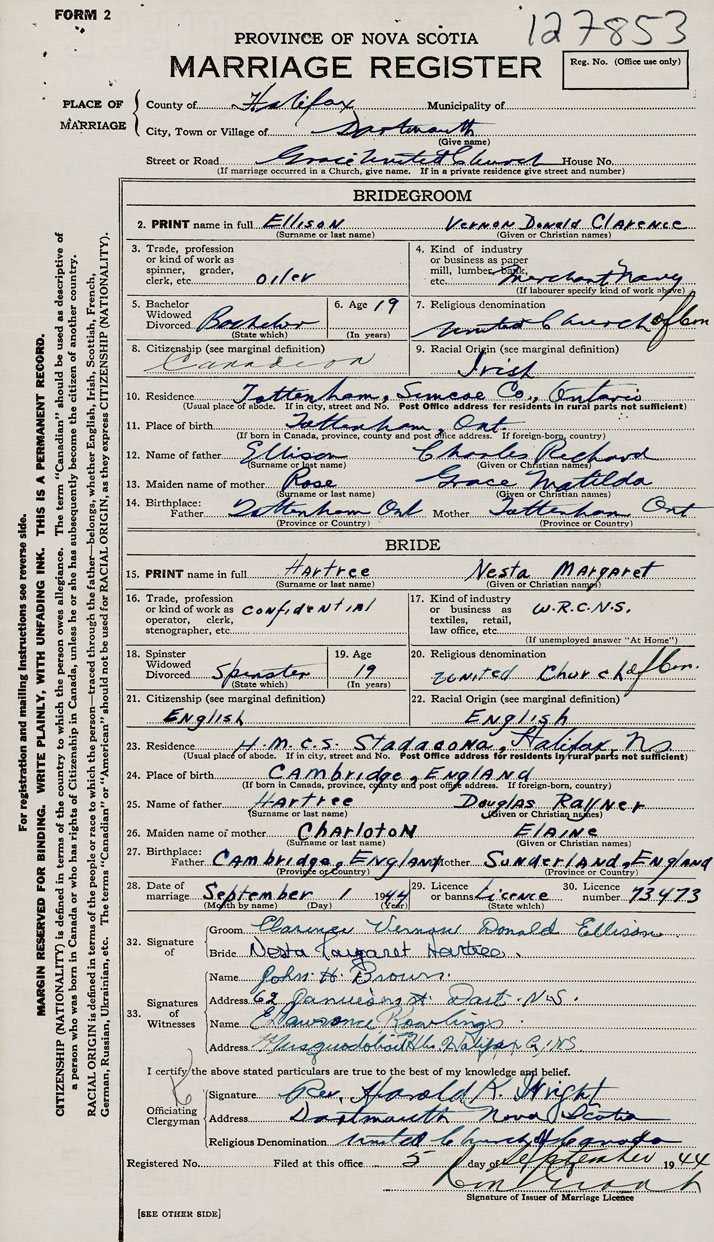 FORM 2
127853
PROVINCE OF NOVA SCOTIA
MARRIAGE REGISTER
Reg. No. (Office use only)
PLACE OF MARRIAGE
County of Halifax Municipality of
City, Town or Village of Dartmouth
(Give name)
Street or Road Grace United Church House No.
(If marriage occurred in a Church, give name. If in a private residence give street and number)
BRIDEGROOM
2. PRINT name in full Ellison Vernon Donald Clarence
(Surname or last name) (Given or Christian names)
3. Trade, profession or kind of work as spinner, grader, clerk, etc. oiler
4. Kind of industry or business as paper mill, lumber, bank, etc. Merchant Navy
(If labourer specify kind of work above)
5. Bachelor Widowed Divorced Bachelor
(State which)
6. Age 19
(In years)
7. Religious denomination United Church of Can
8. Citizenship (see marginal definition) Canadian
9. Racial Origin (see marginal definition) Irish
10. Residence Tottenham, Simcoe Co., Ontario
(Usual place of abode. If in city, street and No. Post Office address for residents in rural parts not sufficient)
11. Place of birth Tottenham, Ont.
(If born in Canada, province, county and post office address. If foreign-born, country)
12. Name of father Ellison Charles Richard
(Surname or last name) (Given or Christian names)
13. Maiden name of mother Rose Grace Matilda
(Surname or last name) (Given or Christian names)
14. Birthplace: Father Tottenham Ont Mother Tottenham Ont
(Province or Country) (Province or Country)
BRIDE
15. PRINT name in full Hartree Nesta Margaret
(Surname or last name) (Given or Christian names)
16. Trade, profession or kind of work as operator, clerk, stenographer, etc. confidential
17. Kind of industry or business as textiles, retail, law office, etc. W.R.C.N.S.
(If unemployed answer "At Home")
18. Spinster Widowed Divorced Spinster
(State which)
19. Age 19
(In years)
20. Religious denomination United Church of Can.
21. Citizenship (see marginal definition) English
22. Racial Origin (see marginal definition) English
23. Residence H.M.C.S. Stadacona, Halifax, NS
(Usual place of abode. If in city, street and No. Post Office address for residents in rural parts not sufficient)
24. Place of birth Cambridge, England
(If born in Canada, province, county and post office address. If foreign-born, country)
25. Name of father Hartree Douglas Rayner
(Surname or last name) (Given or Christian names)
26. Maiden name of mother Charlton Elaine
(Surname or last name) (Given or Christian names)
27. Birthplace: Father Cambridge, England Mother Sunderland, England
(Province or Country) (Province or Country)
28. Date of marriage September 1 1944
(Month by name) (Day) (Year)
29. Licence or banns Licence
(State which)
30. Licence number 73473
32. Signature of
Groom Clarence Vernon Donald Ellison
Bride Nesta Margaret Hartree.
33. Signatures of Witnesses
Name John H Brown.
Address 62 St Dart. N.S.
Name E Lawrence Rowlings
Address Musquodoboit Halifax Co., N.S.
I certify the above stated particulars are true to the best of my knowledge and belief.
Officiating Clergyman
Signature Rev. Harold K. Wright
Address Dartmouth Nova Scotia
Religious Denomination United Church of Canada
Registered No. Filed at this office 5 day of September 1944
Signature of Issuer of Marriage Licence
[SEE OTHER SIDE]
For registration and mailing instructions see reverse side.
MARGIN RESERVED FOR BINDING. WRITE PLAINLY, WITH UNFADING INK. THIS IS A PERMANENT RECORD.
CITIZENSHIP (NATIONALITY) is defined in terms of the country to which the person owes allegiance. The term "Canadian" should be used as descriptive of
a person who was born in Canada or who has rights of Citizenship in Canada, unless he or she has subsequently become the citizen of another country.
RACIAL ORIGIN is defined in terms of the people or race to which the person—traced through the father—belongs, whether English, Irish, Scottish, French,
German, Russian, Ukrainian, etc. The terms "Canadian" or "American" should not be used for RACIAL ORIGIN, as they express CITIZENSHIP (NATIONALITY).